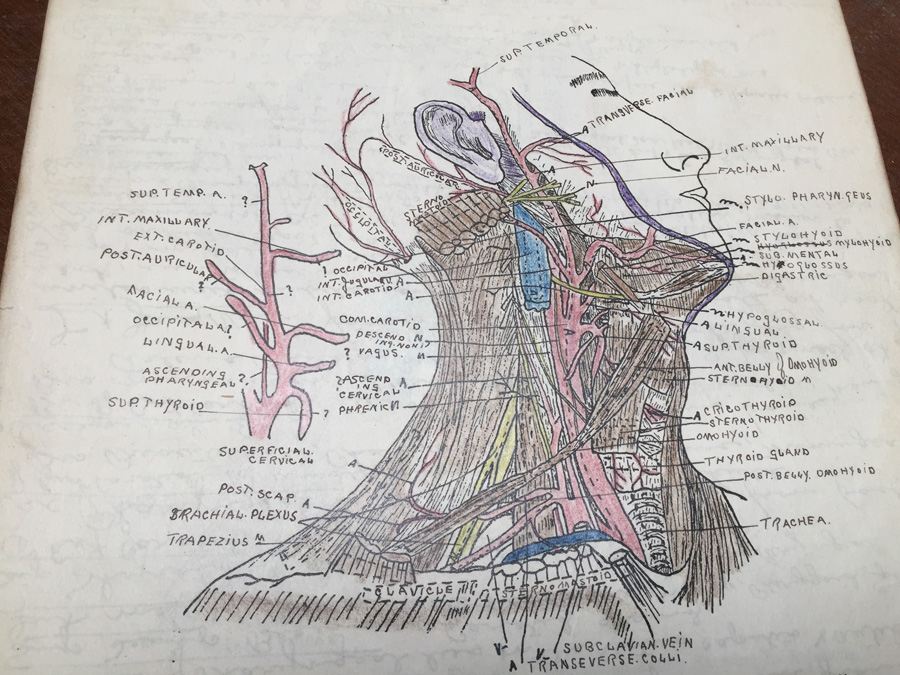 SUP. TEMPORAL.
A TRANSVERSE. FACIAL
INT. MAXILLARY
FACIAL N.
STYLO. PHARYN.GEUS
FACIAL. A.
STYLOHYOID
MYLOHYOID
A SUB. MENTAL
DIGASTRIC
N HYPOGLOSSAL
A LINGUAL
A SUP. THYROID
ANT. BELLY } OMOHYOID
STERNOHYOID M
A CRICOTHYROID
STERNOTHYROID
OMOHYOID
THYROID GLAND
POST. BELLY. OMOHYOID
TRACHEA.
POST. AURICULAR
OCCIPITAL
STERNO
A
N
SUP. TEMP. A. ?
INT. MAXILLARY
EXT. CAROTID
POST. AURICULAR
?
?
FACIAL A.
OCCIPITAL A ?
LINGUAL. A
ASCENDING
PHARYNGEAL ?
SUP. THYROID
?
SUPERFICIAL
CERVICAL
? OCCIPITAL
INT. JUGULAR
INT. CAROTID A
COM. CAROTID
DESCEND N
? VAGUS. N
? ASCEND
ING A
CERVICAL
PHRENIC N
A
POST. SCAP. A
BRACHIAL. PLEXUS
TRAPEZIUS M
CLAVICLE
STERNOMASTOID
V
V SUBCLAVIAN. VEIN
A TRANSEVERSE. COLLI.